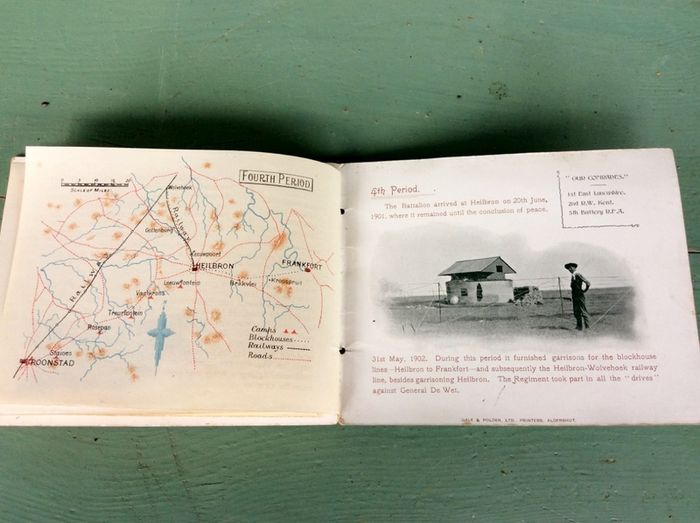 FOURTH PERIOD
SCALE OF MILES
Wolvehoek
RAILWAY
Gottenburg
Railway
Leeuwpoort
HEILBRON
FRANKFORT
Leeuwfontein
Brakvlei
Kromspruit
Vaalkrans
Treurfontein
Rosepan
Camps
Blockhouses
Railways
Roads
4th Period.
The Battalion arrived at Heilbron on 20th June,
1901, where it remained until the conclusion of peace,
"OUR COMRADES."
1st East Lancashire,
2nd R.W. Kent,
5th Battery R.F.A.
31st May, 1902. During this period it furnished garrisons for the blockhouse
lines—Heilbron to Frankfort—and subsequently the Heilbron-Wolvehoek railway
line, besides garrisoning Heilbron. The Regiment took part in all the "drives"
against General De Wet.
GALE & POLDEN, LTD. PRINTERS, ALDERSHOT.